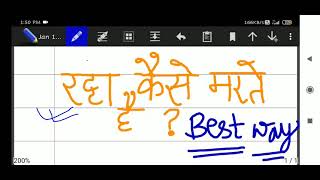 1:50 PM
166KB/s
Jan 1...
रट्टा कैसे मारते
है ? Best way
200%
1 / 1